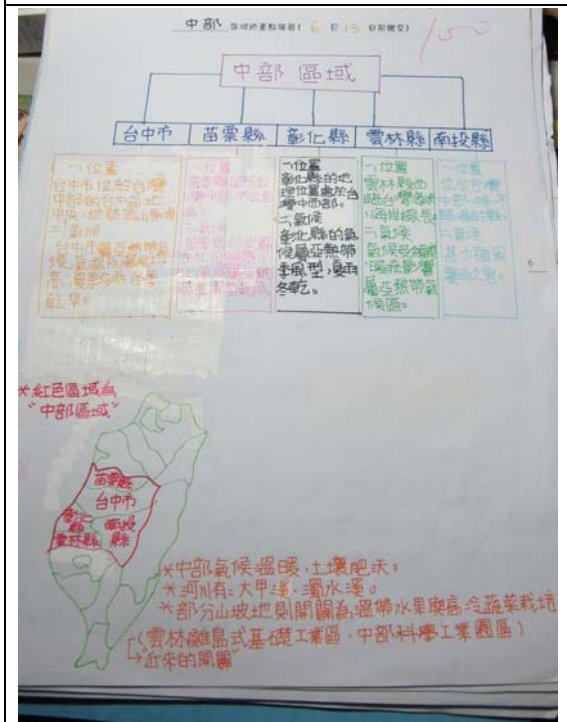 中部 區域的重點摘要( 6 年 13 份前繳交)
150
中部 區域
台中市 苗栗縣 彰化縣 雲林縣 南投縣
一、位置
台中市位於台灣
中部的台中盆地
二、氣候
台中市屬亞熱帶氣
乾旱。
一、位置
二、氣候
一、位置
彰化縣的地
理位置處於台
灣中西部。
二、氣候
彰化縣的氣
候屬亞熱帶
季風型,夏雨
冬乾。
一、位置
雲林縣西
臨台灣海峽
海岸線長
二、氣候
屬亞熱帶氣
候區。
一、位置
位於台灣
中部,唯一不
臨海的縣。
二、氣候
6
*紅色區域為
"中部區域"
苗栗縣
台中市
彰化
縣
南投
縣
雲林縣
*中部氣候溫暖、土壤肥沃。
*河川有:大甲溪、濁水溪。
*部分山坡地則開闢為溫帶水果與高冷蔬菜栽培
(雲林離島式基礎工業區、中部科學工業園區)
"近來的開闢"